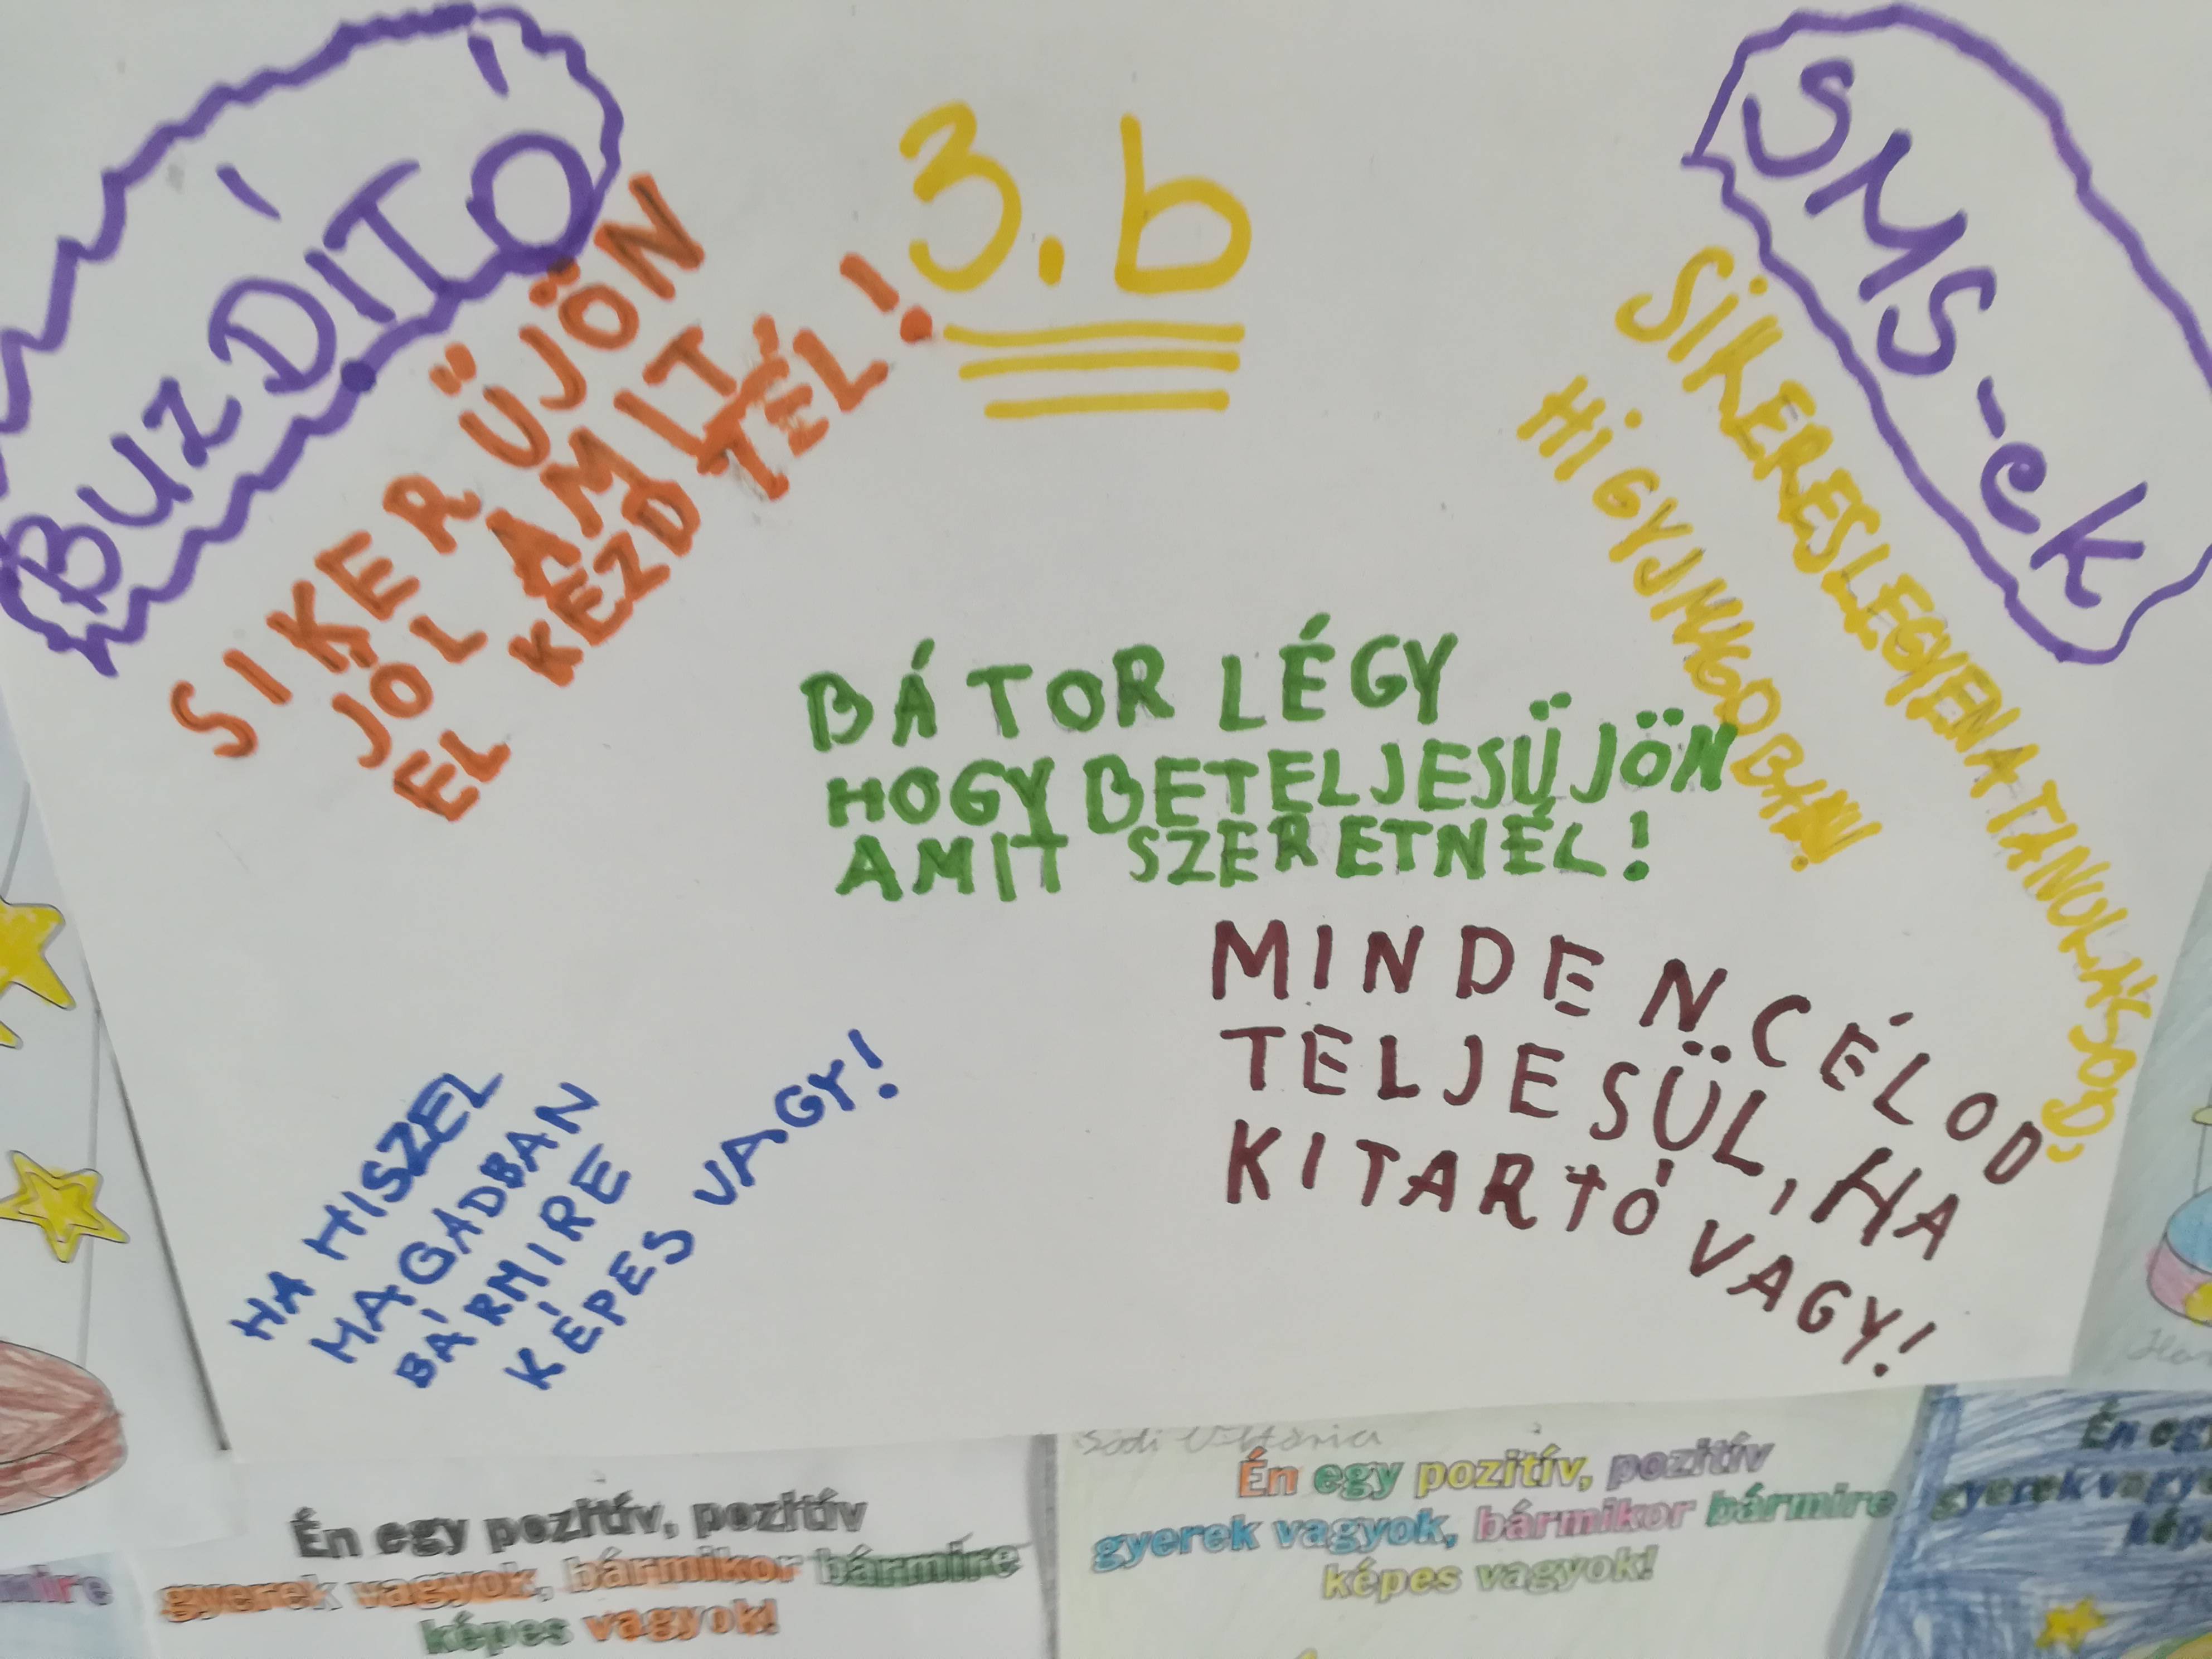 BUZDÍTÓ
SMS-ek
3.b
SIKERÜJÖN
JÓL AMIT
EL KEZDTÉL!
SIKERES LEGYEN A TANULÁSOD,
HIGYJ MAGADBAN!
BÁTOR LÉGY
HOGY BETELJESÜJÖN
AMIT SZERETNÉL!
MINDEN CÉLOD
TELJESÜL, HA
KITARTÓ VAGY!
HA HISZEL
MAGADBAN
BÁRMIRE
KÉPES VAGY!
Én egy pozitív, pozitív
gyerek vagyok, bármikor bármire
képes vagyok!
Viktória
Én egy pozitív, pozitív
gyerek vagyok, bármikor bármire
képes vagyok!
Én egy
gyerek vagyo
kép
mire